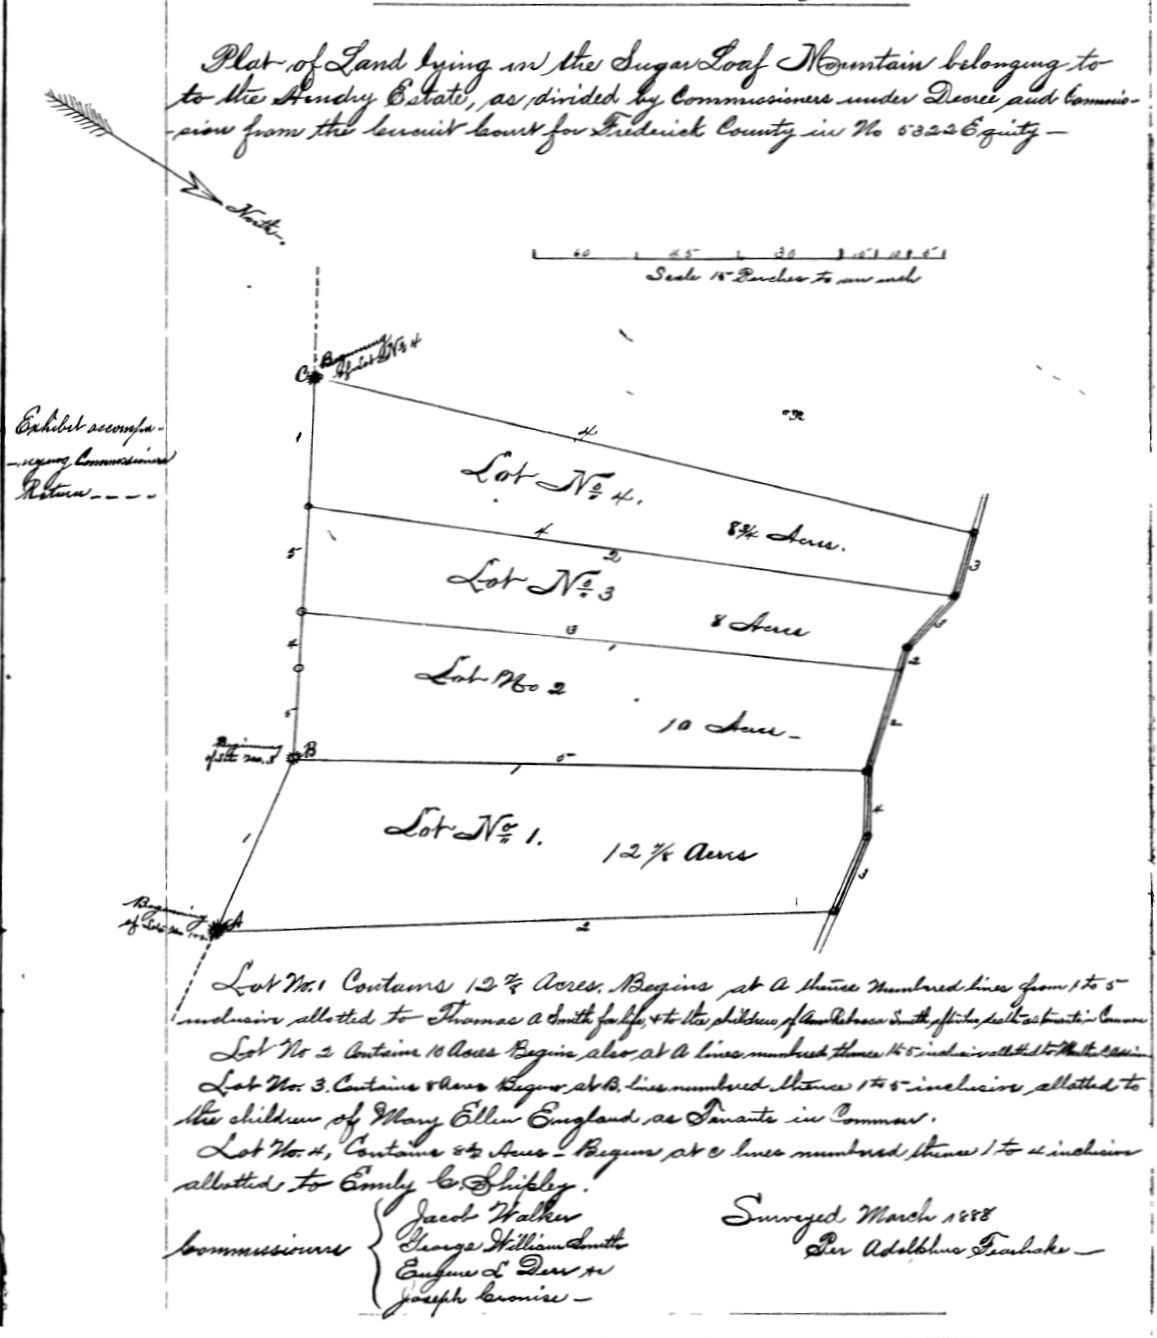 Plat of Land lying in the Sugar Loaf Mountain belonging to
to the Hendry Estate, as divided by Commissioners under Decree and Commis-
-sion from the Circuit Court for Frederick County in No 5322 Equity —
North.
60 45 30 15 10 5
Scale 15 Perches to an inch
C Beginning
of Lot No 4
Exhibit accompa-
-nying Commissioners
Return ----
1
4
Lot No 4.
8 3/4 Acres.
3
5
4
2
Lot No 3
8 Acres
3
4
3
1
2
Lot No 2
10 Acres —
2
5
Beginning
of Lot No. 3
B
5
1
4
Lot No 1.
12 7/8 Acres
1
3
Beginning
of Lots No
A
1
2
Lot No. 1 Contains 12 7/8 Acres. Begins at A thence numbered lines from 1 to 5
inclusive allotted to Thomas A Smith for life, & to the children of Ann Rebecca Smith after his death as tenants in Common
Lot No 2 Contains 10 Acres Begins also at A lines numbered thence 1 to 5 inclusive allotted to
Lot No. 3. Contains 8 Acres Begins at B. lines numbered thence 1 to 5 inclusive allotted to
the children of Mary Ellen England as Tenants in Common.
Lot No. 4, Contains 8 3/4 Acres — Begins at C lines numbered thence 1 to 4 inclusive
allotted to Emily C. Shipley.
Commissioners
Jacob Walker
George William Smith
Eugene L Derr
Joseph Cronise —
Surveyed March 1888
Per Adolphus Fearhake —